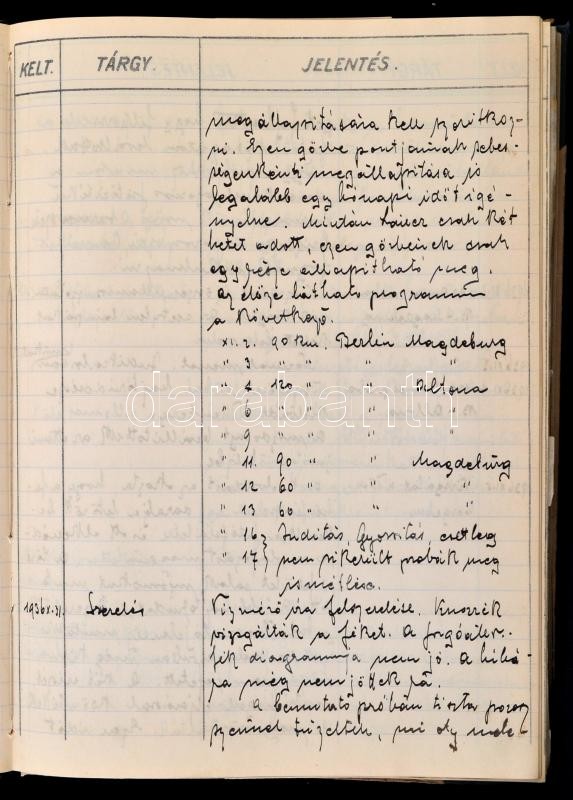 KELT. TÁRGY. JELENTÉS.
megállapítására kell szorítkoz-
ni. Ezen görbe pontjainak sebes-
ségenkénti megállapítása is
legalább egy hónapi időt igé-
nyelne. Miután csak két
hetet adott, ezen görbéinek csak
egy része állapítható meg.
Az előre látható programm
a következő.
XI. 2. 90 km. Berlin Magdeburg
" 3 " " "
" 4 120 " " Altona
" 6 " " " "
" 9 " " " "
" 11. 90 " " Magdeburg
" 12 60 " " "
" 13 60 " " "
" 16 } Indítás, Gyorsítás, esetleg
" 17 } nem sikerült próbák meg
ismétlése.
1936 X. 31. Szerelés Vízmérő óra felszerelése. Knorrék
vizsgálták a féket. A forgóalv.
fék diagrammja nem jó. A hibá-
ra még nem jöttek rá.
A bemutató próbán tiszta porosz
szénnel tüzeltek, mi oly
darabanth